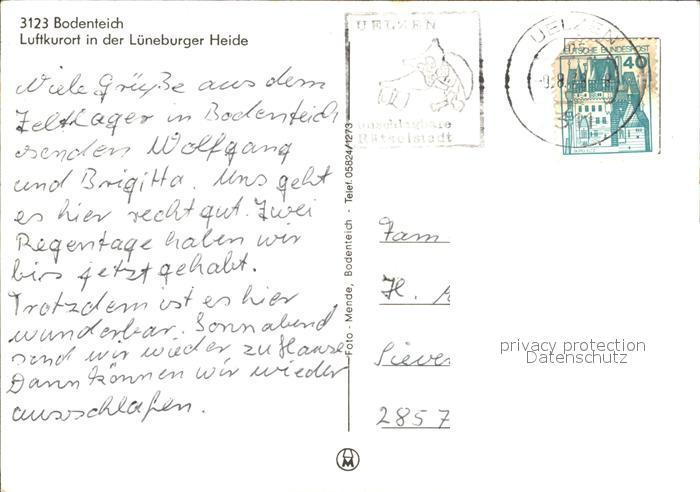 3123 Bodenteich
Luftkurort in der Lüneburger Heide
Viele Grüße aus dem
Zeltlager in Bodenteich
senden Wolfgang
und Brigitta. Uns geht
es hier recht gut. Zwei
Regentage haben wir
bis jetzt gehabt.
Trotzdem ist es hier
wunderbar. Sonnabend
sind wir wieder zu Hause.
Dann können wir wieder
ausschlafen.
Foto - Mende, Bodenteich · Telef. 05824/1273
UELZEN
unschlagbare
Rätselstadt
UELZEN
DEUTSCHE BUNDESPOST
40
Fam
H.
Siever
2857
privacy protection
Datenschutz
M